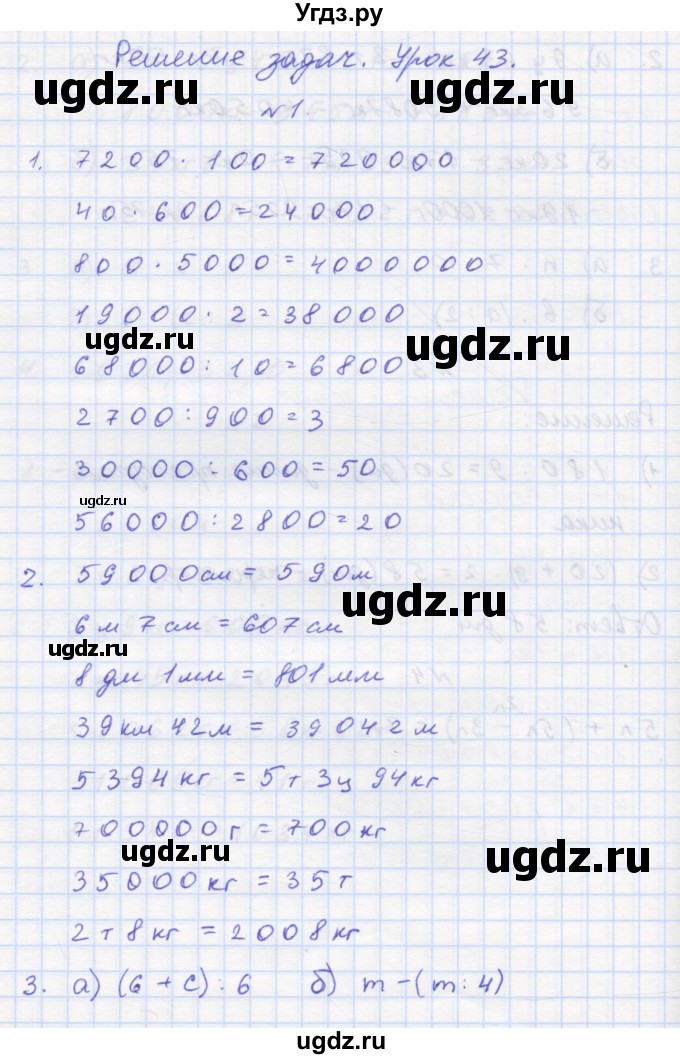 Угдз.ру
Решение задач. Урок 43.
ugdz.ru ugdz.ru
№1.
1. 7200 · 100 = 720000
40 · 600 = 24000
800 · 5000 = 4000000
19000 · 2 = 38000
ugdz.ru ugdz.ru
68000 : 10 = 6800
2700 : 900 = 3
30000 : 600 = 50
ugdz.ru
56000 : 2800 = 20
2. 59000 см = 590 м
ugdz.ru
6 м 7 см = 607 см
ugdz.ru
8 дм 1 мм = 801 мм
39 км 42 м = 39042 м
5394 кг = 5 т 3 ц 94 кг
700000 г = 700 кг
ugdz.ru ugdz.ru
35000 кг = 35 т
2 т 8 кг = 2008 кг
3. а) (6 + c) : 6 б) m - (m : 4)
ugdz.ru